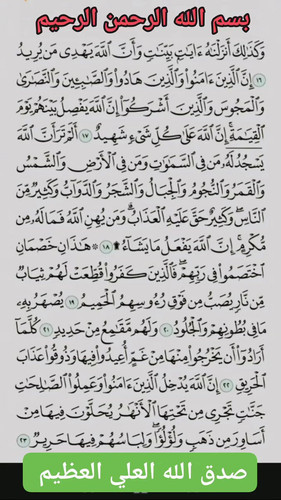 بسم الله الرحمن الرحيم
وَكَذَٰلِكَ أَنزَلْنَٰهُ ءَايَٰتٍۭ بَيِّنَٰتٍ وَأَنَّ ٱللَّهَ يَهْدِى مَن يُرِيدُ
١٦ إِنَّ ٱلَّذِينَ ءَامَنُوا۟ وَٱلَّذِينَ هَادُوا۟ وَٱلصَّٰبِـِٔينَ وَٱلنَّصَٰرَىٰ
وَٱلْمَجُوسَ وَٱلَّذِينَ أَشْرَكُوٓا۟ إِنَّ ٱللَّهَ يَفْصِلُ بَيْنَهُمْ يَوْمَ
ٱلْقِيَٰمَةِ إِنَّ ٱللَّهَ عَلَىٰ كُلِّ شَىْءٍ شَهِيدٌ ١٧ أَلَمْ تَرَ أَنَّ ٱللَّهَ
يَسْجُدُ لَهُۥ مَن فِى ٱلسَّمَٰوَٰتِ وَمَن فِى ٱلْأَرْضِ وَٱلشَّمْسُ
وَٱلْقَمَرُ وَٱلنُّجُومُ وَٱلْجِبَالُ وَٱلشَّجَرُ وَٱلدَّوَآبُّ وَكَثِيرٌ مِّنَ
ٱلنَّاسِ وَكَثِيرٌ حَقَّ عَلَيْهِ ٱلْعَذَابُ وَمَن يُهِنِ ٱللَّهُ فَمَا لَهُۥ مِن
مُّكْرِمٍ إِنَّ ٱللَّهَ يَفْعَلُ مَا يَشَآءُ ۩ ١٨ ۞ هَٰذَانِ خَصْمَانِ
ٱخْتَصَمُوا۟ فِى رَبِّهِمْ فَٱلَّذِينَ كَفَرُوا۟ قُطِّعَتْ لَهُمْ ثِيَابٌ
مِّن نَّارٍ يُصَبُّ مِن فَوْقِ رُءُوسِهِمُ ٱلْحَمِيمُ ١٩ يُصْهَرُ بِهِۦ
مَا فِى بُطُونِهِمْ وَٱلْجُلُودُ ٢٠ وَلَهُم مَّقَٰمِعُ مِنْ حَدِيدٍ ٢١ كُلَّمَآ
أَرَادُوٓا۟ أَن يَخْرُجُوا۟ مِنْهَا مِنْ غَمٍّ أُعِيدُوا۟ فِيهَا وَذُوقُوا۟ عَذَابَ
ٱلْحَرِيقِ ٢٢ إِنَّ ٱللَّهَ يُدْخِلُ ٱلَّذِينَ ءَامَنُوا۟ وَعَمِلُوا۟ ٱلصَّٰلِحَٰتِ
جَنَّٰتٍ تَجْرِى مِن تَحْتِهَا ٱلْأَنْهَٰرُ يُحَلَّوْنَ فِيهَا مِنْ
أَسَاوِرَ مِن ذَهَبٍ وَلُؤْلُؤًا وَلِبَاسُهُمْ فِيهَا حَرِيرٌ ٢٣
صدق الله العلي العظيم